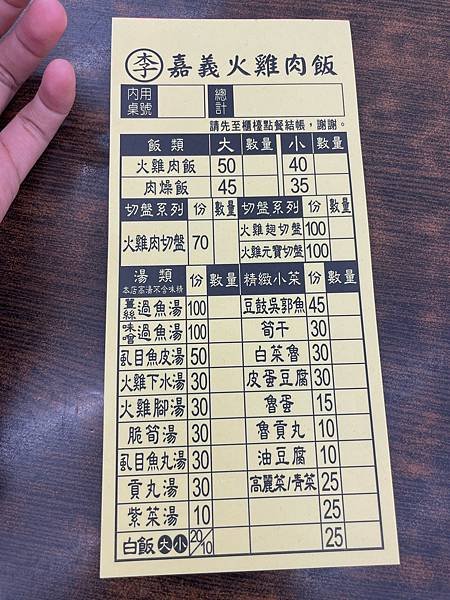 李 嘉義火雞肉飯
內用桌號 總計
請先至櫃檯點餐結帳，謝謝。
飯類 大 數量 小 數量
火雞肉飯 50 40
肉燥飯 45 35
切盤系列 份 數量 切盤系列 份 數量
火雞肉切盤 70 火雞翅切盤 100
火雞元寶切盤 100
湯類 本店高湯不含味精 份 數量 精緻小菜 份 數量
薑絲過魚湯 100 豆鼓吳郭魚 45
味噌過魚湯 100 筍干 30
虱目魚皮湯 50 白菜魯 30
火雞下水湯 30 皮蛋豆腐 30
火雞腳湯 30 魯蛋 15
脆筍湯 30 魯貢丸 10
虱目魚丸湯 30 油豆腐 10
貢丸湯 30 高麗菜/青菜 25
紫菜湯 10 25
白飯 大 小 20/10 25